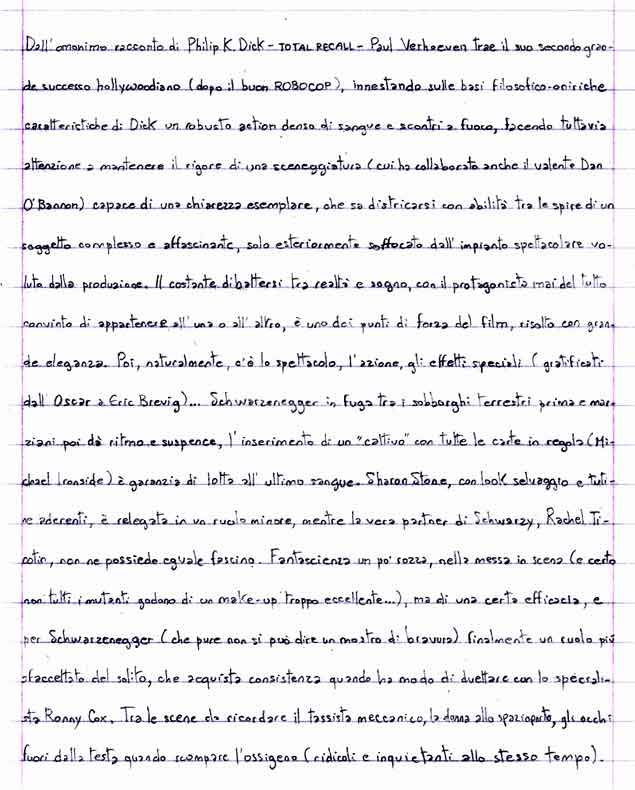 Dall'omonimo racconto di Philip K. Dick - TOTAL RECALL - Paul Verhoeven trae il suo secondo gran-
de successo hollywoodiano (dopo il buon ROBOCOP), innestando sulle basi filosofico-oniriche
caratteristiche di Dick un robusto action denso di sangue e scontri a fuoco, facendo tuttavia
attenzione a mantenere il rigore di una sceneggiatura (cui ha collaborato anche il valente Dan
O'Bannon) capace di una chiarezza esemplare, che sa districarsi con abilità tra le spire di un
soggetto complesso e affascinante, solo esteriormente soffocato dall'impianto spettacolare vo-
luto dalla produzione. Il costante dibattersi tra realtà e sogno, con il protagonista mai del tutto
convinto di appartenere all'una o all'altro, è uno dei punti di forza del film, risolto con gran-
de eleganza. Poi, naturalmente, c'è lo spettacolo, l'azione, gli effetti speciali (gratificati
dall'Oscar a Eric Brevig)... Schwarzenegger in fuga tra i sobborghi terrestri prima e mar-
ziani poi dà ritmo e suspence, l'inserimento di un "cattivo" con tutte le carte in regola (Mi-
chael Ironside) è garanzia di lotta all'ultimo sangue. Sharon Stone, con look selvaggio e tuti-
ne aderenti, è relegata in un ruolo minore, mentre la vera partner di Schwarzy, Rachel Ti-
cotin, non ne possiede eguale fascino. Fantascienza un po' rozza, nella messa in scena (e certo
non tutti i mutanti godono di un make-up troppo eccellente...), ma di una certa efficacia, e
per Schwarzenegger (che pure non si può dire un mostro di bravura) finalmente un ruolo più
sfaccettato del solito, che acquista consistenza quando ha modo di duettare con lo speciali-
sta Ronny Cox. Tra le scene da ricordare il tassista meccanico, la donna allo spazioporto, gli occhi
fuori dalla testa quando scompare l'ossigeno (ridicoli e inquietanti allo stesso tempo).